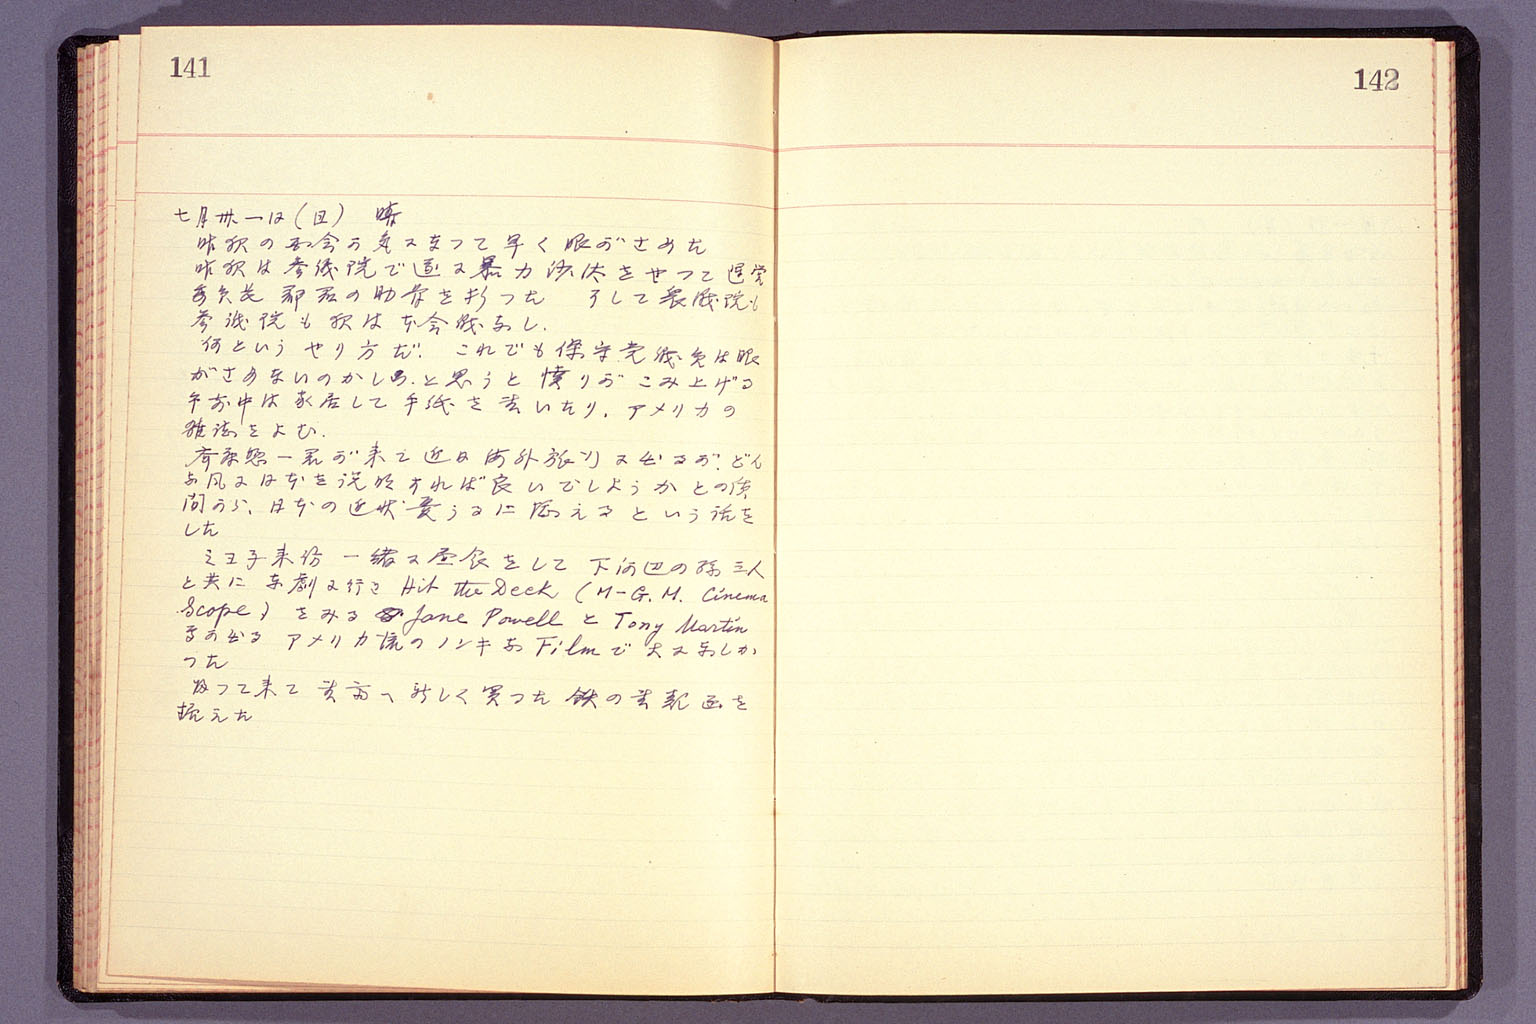 141
142
七月卅一日(日) 晴
昨夜の国会が気になつて早く眼がさめた
昨夜は参議院で遂に暴力沙汰をやつて
君の肋骨を折つた そして衆議院も
参議院も夜は本会議なし.
何というやり方だ. これでも保守党議員は眼
がさめないのかしら.と思うと憤りがこみ上げる
午前中は家居して手紙を書いたり.アメリカの
雑誌をよむ.
一君が来て近日海外旅行に出るが.どん
な風に日本を説明すれば良いでしようかとの質
問から、日本の近状憂うるに堪えるという話を
した
ミヨ子来訪 一緒に昼食をして 下河辺の孫三人
と共に 東劇に行き Hit the Deck (M-G.M. Cinema
Scope) をみる Jane Powell と Tony Martin
等の出る アメリカ流のノンキな Film で大に楽しか
つた
帰つて来て 書斎へ新しく買つた 鉄の書類函を
据えた